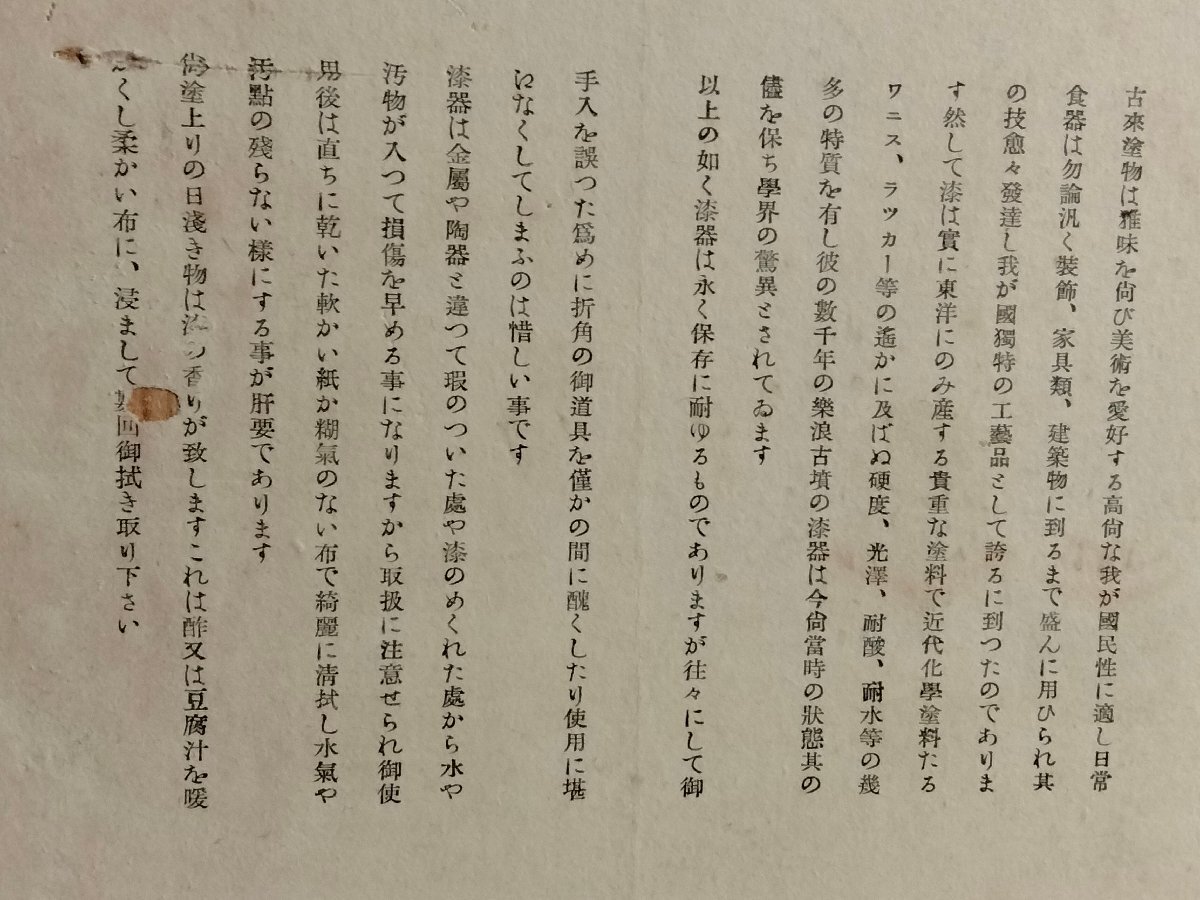 古來塗物は雅味を尙び美術を愛好する高尙な我が國民性に適し日常
食器は勿論汎く裝飾、家具類、建築物に到るまで盛んに用ひられ其
の技愈々發達し我が國獨特の工藝品として誇るに到つたのでありま
す然して漆は實に東洋にのみ産する貴重な塗料で近代化學塗料たる
ワニス、ラッカー等の遙かに及ばぬ硬度、光澤、耐酸、耐水等の幾
多の特質を有し彼の數千年の樂浪古墳の漆器は今尙當時の狀態其の
儘を保ち學界の驚異とされてゐます
以上の如く漆器は永く保存に耐ゆるものでありますが往々にして御
手入を誤つた爲めに折角の御道具を僅かの間に醜くしたり使用に堪
はなくしてしまふのは惜しい事です
漆器は金屬や陶器と違つて瑕のついた處や漆のめくれた處から水や
汚物が入つて損傷を早める事になりますから取扱に注意せられ御使
用後は直ちに乾いた軟かい紙か糊氣のない布で綺麗に淸拭し水氣や
汚點の殘らない樣にする事が肝要であります
尙塗上りの日淺き物は漆の香りが致しますこれは酢又は豆腐汁を暖
くし柔かい布に、浸まして回御拭き取り下さい